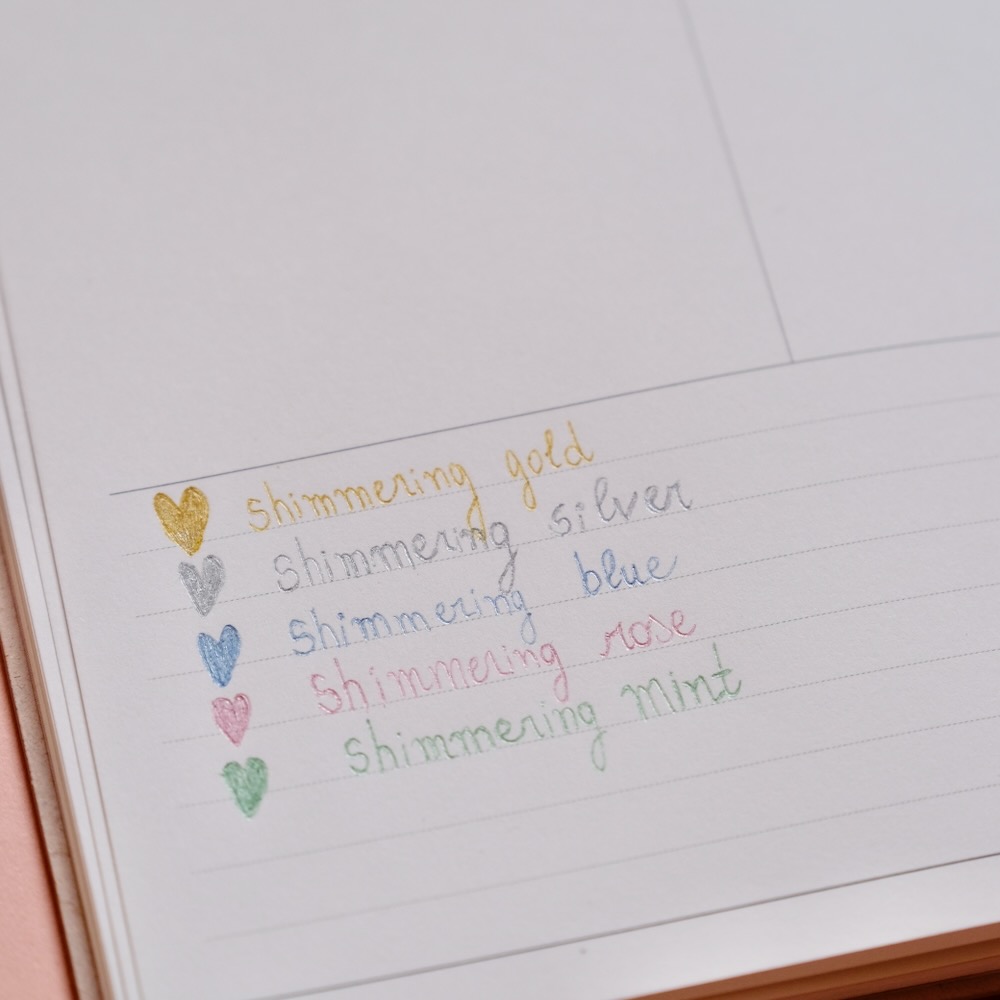 shimmering gold
shimmering silver
shimmering blue
shimmering rose
shimmering mint